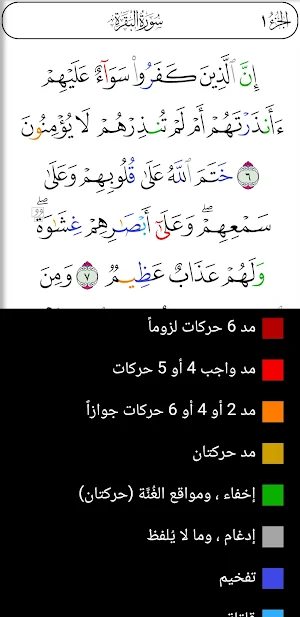 الجزء ١
سورة البقرة
إِنَّ ٱلَّذِينَ كَفَرُوا۟ سَوَآءٌ عَلَيْهِمْ
ءَأَنذَرْتَهُمْ أَمْ لَمْ تُنذِرْهُمْ لَا يُؤْمِنُونَ
٦ خَتَمَ ٱللَّهُ عَلَىٰ قُلُوبِهِمْ وَعَلَىٰ
سَمْعِهِمْ ۖ وَعَلَىٰٓ أَبْصَـٰرِهِمْ غِشَـٰوَةٌ ۖ
وَلَهُمْ عَذَابٌ عَظِيمٌ ٧ وَمِنَ
مد 6 حركات لزوماً
مد واجب 4 أو 5 حركات
مد 2 أو 4 أو 6 حركات جوازاً
مد حركتان
إخفاء ، ومواقع الغُنَّة (حركتان)
إدغام ، وما لا يُلفظ
تفخيم